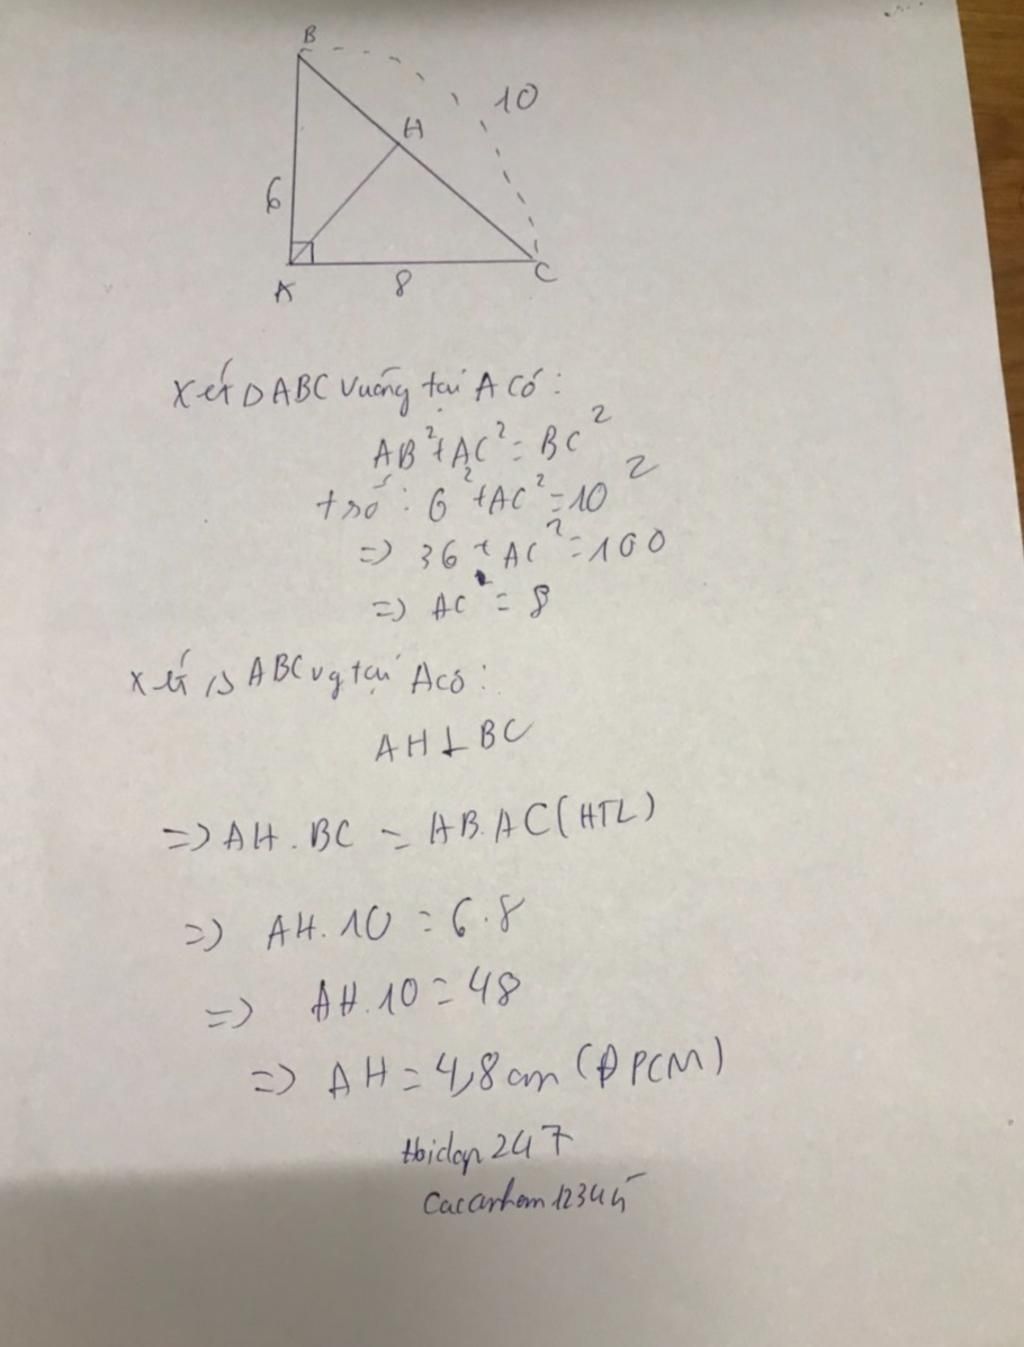 B
10
H
6
A
8
C
Xét ΔABC vuông tại A có:
AB²+AC²=BC²
+ số: 6²+AC²=10²
=> 36+AC²=100
=> AC = 8
Xét Δ ABC vg tại A có:
AH⊥BC
=> AH.BC = AB.AC (HTL)
=> AH.10 = 6.8
=> AH.10 = 48
=> AH = 4,8cm (ĐPCM)
247